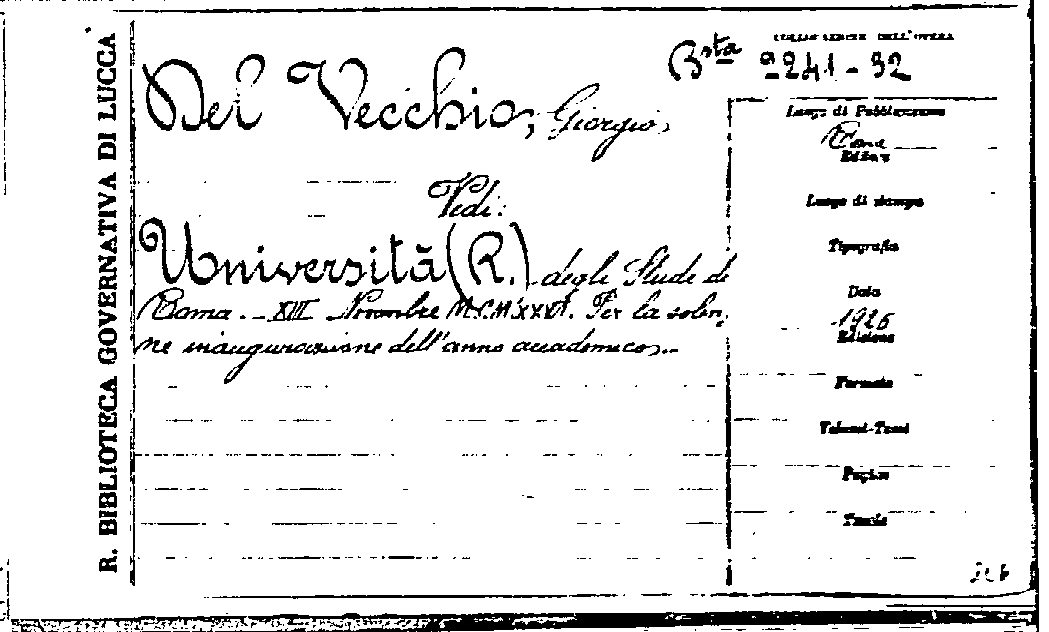 R. BIBLIOTECA GOVERNATIVA DI LUCCA
COLLOCAZIONE DELL'OPERA
Bsta 9241-32
Del Vecchio, Giorgio,
Vedi:
Università (R.) degli Studi di
Roma. - XIII Novembre Per la solen,
ne inaugurazione dell'anno accademico.-
Luogo di Pubblicazione
Roma
Editore
Luogo di stampa
Tipografia
Data
1926
Edizione
Formato
Volumi-Tomi
Pagine
Tavole